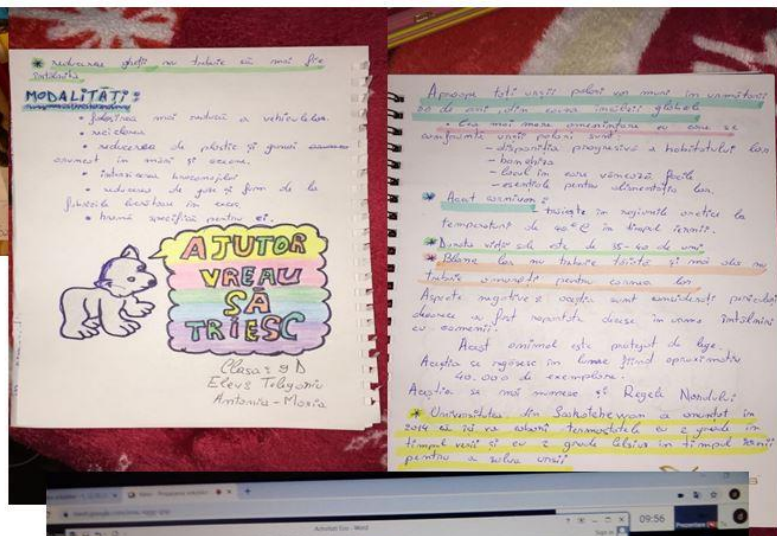 * reducerea gheții nu trebuie să mai fie
MODALITĂȚI:
• folosirea mai redusă a vehiculelor.
• reciclarea
• reducerea de plastic și gunoi
aruncat în mări și oceane.
• interzicerea braconajului
• reducerea de gaze și fum de la
fabricile lucrătoare în exces
• hrană specifică pentru ei.
AJUTOR
VREAU
SĂ
TRĂIESC
Clasa: 9 D
Elevă
Antonia-Maria
Aproape toți urșii polari vor muri în următorii
80 de ani, din cauza încălzirii globale
• Cea mai mare amenințare cu care se
confruntă urșii polari sunt:
- dispariția progresivă a habitatului lor
- banchiza
- locul în care vânează focile
- esențiale pentru alimentația lor.
* Acest carnivor:
- trăiește în regiunile arctice la
temperaturi de 40°C în timpul iernii.
* Durata vieții sale este de 35-40 de ani
* Blana lor nu trebuie și mai ales nu
trebuie omorâți pentru carnea lor
Aspecte negative: aceștia sunt considerați periculoși
deoarece au fost raportate decese în urma întâlnirii
cu oamenii.
Acest animal este protejat de lege.
Aceștia se regăsesc în lume fiind aproximativ
40.000 de exemplare.
Aceștia se mai numesc și Regele Nordului
* Universitatea din Saskatchewan a anunțat în
2014 că își va coborî termostatele cu 2 grade în
timpul verii și cu 2 grade Celsius în timpul iernii
pentru a salva urșii
09:56